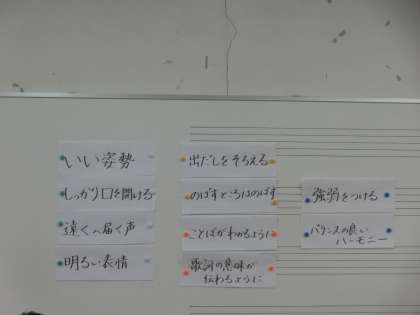 いい姿勢
しっかり口を開ける
遠くへ届く声
明るい表情
出だしをそろえる
のばすところはのばす
ことばがわかるように
歌詞の意味が
伝わるように
強弱をつける
バランスの良い
ハーモニー